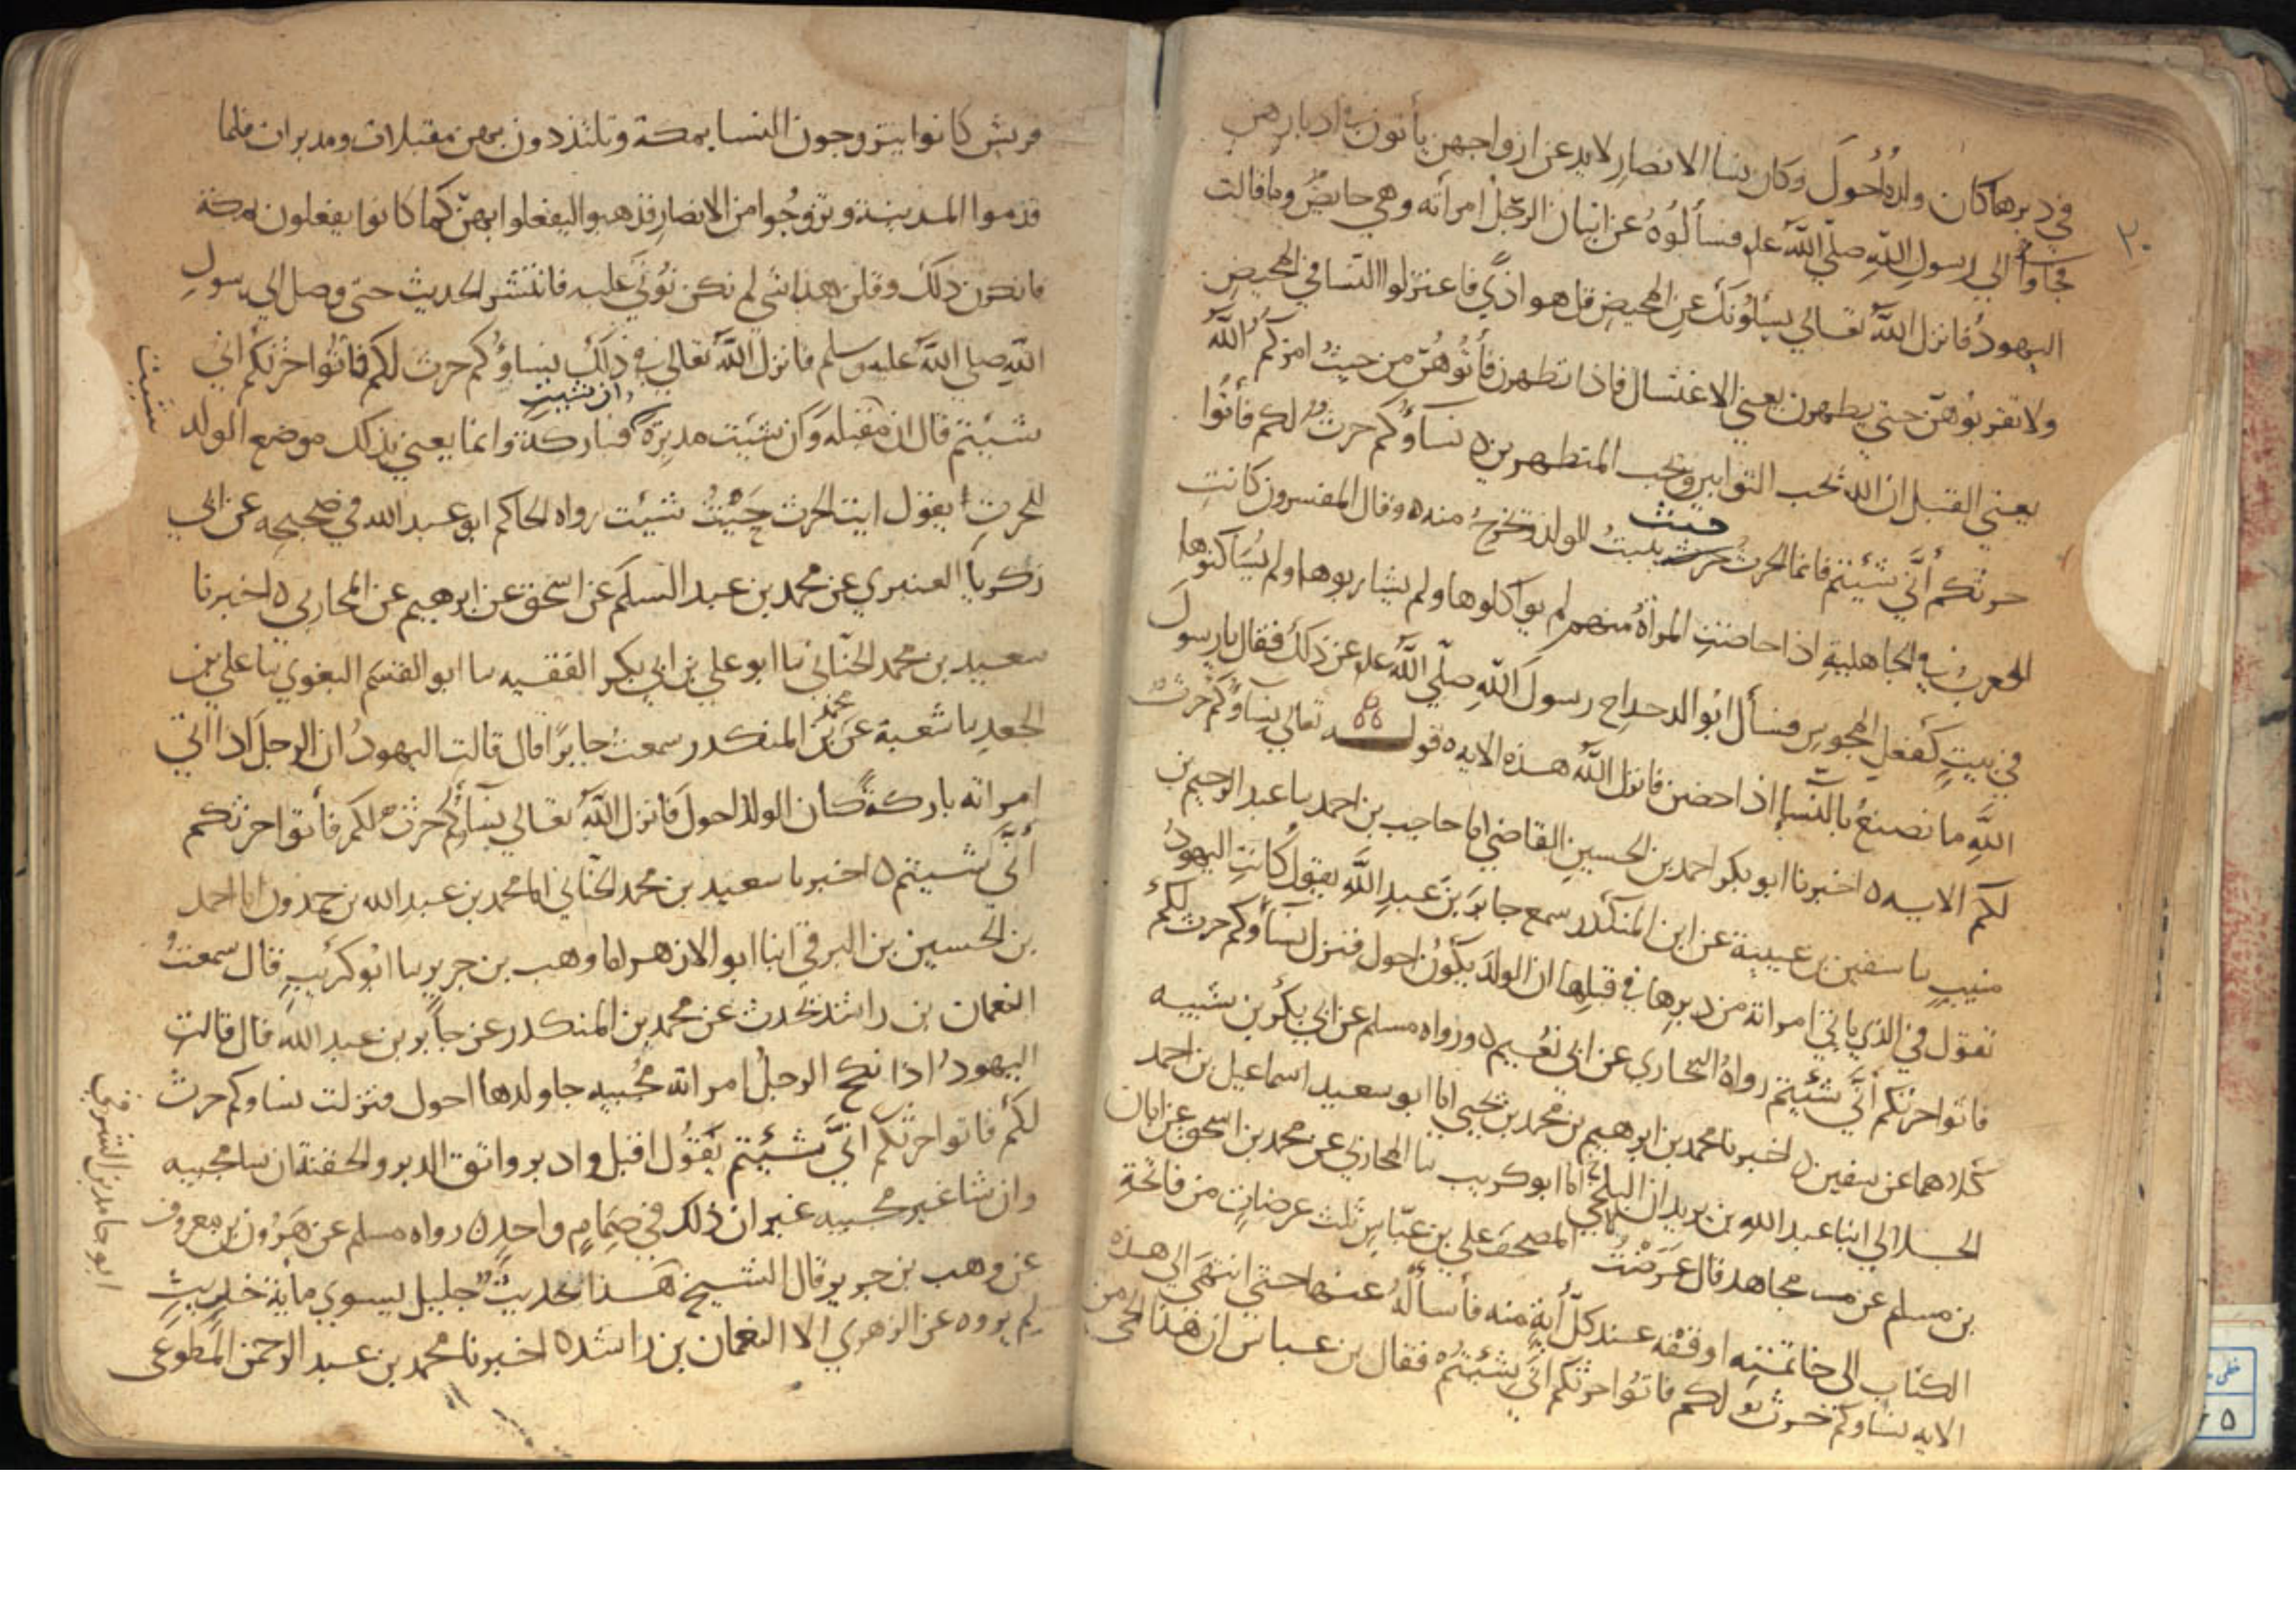 في دبرها كان ولده أحول وكان نسا الانصار لا يدعن ازواجهن يأتونهن في ادبارهن
فجاوا الي رسول الله صلي الله عليه فسألوه عن اتيان الرجل امرأته وهي حايض وما قالت
اليهود فانزل الله تعالي يسألونك عن المحيض قل هو اذي فاعتزلوا النسا في المحيض
ولا تقربوهن حتي يطهرن يعني الاغتسال فاذا تطهرن فأتوهن من حيث امركم الله
يعني القبل ان الله يحب التوابين ويحب المتطهرين ه نساؤكم حرث لكم فأتوا
حرثكم أني شئتم فانما الحرث حيث ينبت الولد ويخرج منه ه وقال المفسرون كانت
العرب في الجاهلية اذا حاضت المرأة منهم لم يواكلوها ولم يشاربوها ولم يساكنوها
في بيت كفعل المجوس فسأل ابو الدحداح رسول الله صلي الله عليه عن ذلك فقال يا رسول
الله ما نصنع بالنسا اذا حضن فانزل الله هذه الايه ه قوله تعالي نساؤكم حرث
لكم الايه ه اخبرنا ابو بكر احمد بن الحسين القاضي انا حاجب بن احمد نا عبد الرحيم بن
منيب نا سفين بن عيينة عن ابن المنكدر سمع جابر بن عبد الله يقول كانت اليهود
تقول في الذي ياتي امراته من دبرها في قبلها ان الولد يكون احول فنزل نساؤكم حرث لكم
فاتوا حرثكم أني شئتم رواه البخاري عن ابي نعيم ه ورواه مسلم عن ابي بكر بن شيبه
كلاهما عن سفين ه اخبرنا محمد بن ابرهيم بن محمد بن يحيي انا ابو سعيد اسماعيل بن احمد
الخلالي انبا عبد الله بن زيدان البلخي انا ابو كريب نا المحاربي عن محمد بن اسحق عن ابان
بن مسلم عن مجاهد قال عرضت المصحف علي بن عباس ثلث عرضات من فاتحة
الكتاب الى خاتمته اوقفه عند كل أية منه فأسأله عنها حتي انتهى الى هذه
الايه نساوكم حرث لكم فاتوا حرثكم اني شئتم فقال بن عباس ان هذا الحي من
٢٠
قريش كانوا يتزوجون النسا بمكة وتلتذذون بهن مقبلات ومدبرات فلما
قدموا المدينة وتزوجوا من الانصار فذهبوا ليفعلوا بهن كما كانوا يفعلون بمكة
فانكرن ذلك وقلن هذا شي لم نكن نؤتى عليه فانتشر الحديث حتى وصل الى رسول
الله صلى الله عليه وسلم فانزل الله تعالى في ذلك نساؤكم حرث لكم فأتوا حرثكم اني
شئتم قال ان مقبله وان شيت مدبرة وان شيت فباركة وانما يعني بذلك موضع الولد
للحرث يقول ايت الحرث حيث شيت رواه الحاكم ابو عبد الله في صحيحه عن ابي
زكريا العنبري عن محمد بن عبد السلم عن اسحق عن ابرهيم عن المحاربي ه اخبرنا
سعيد بن محمد الحناني نا ابو علي بن ابي بكر الفقيه نا ابو القسم البغوي نا علي بن
الجعد نا شعبة عن محمد بن المنكدر سمعت جابرا قال قالت اليهود ان الرجل اذا اتي
امراته باركة كان الولد احول فانزل الله تعالي نساؤكم حرث لكم فأتوا حرثكم
أني شيتم ه اخبرنا سعيد بن محمد الحناني انا محمد بن عبد الله بن حمدون انا احمد
بن الحسين بن الشرقي انبا ابو الازهر انا وهب بن جرير نا ابو كريب قال سمعت
النعمان بن راشد يحدث عن محمد بن المنكدر عن جابر بن عبد الله قال قالت
اليهود اذا نكح الرجل امراته مجبيه جا ولدها احول فنزلت نساوكم حرث
لكم فاتوا حرثكم أني شئتم يقول اقبل وادبر واتق الدبر والحيضة ان شا مجبيه
وان شا غير مجبيه غير ان ذلك في صمام واحد ه رواه مسلم عن هرون بن معروف
عن وهب بن جرير قال الشيخ هذا حديث جليل يسوي مأية حديث
لم يروه عن الزهري الا النعمان بن راشد ه اخبرنا محمد بن عبد الرحمن المطوعي
شيت
ابو حامد بن الشرقي